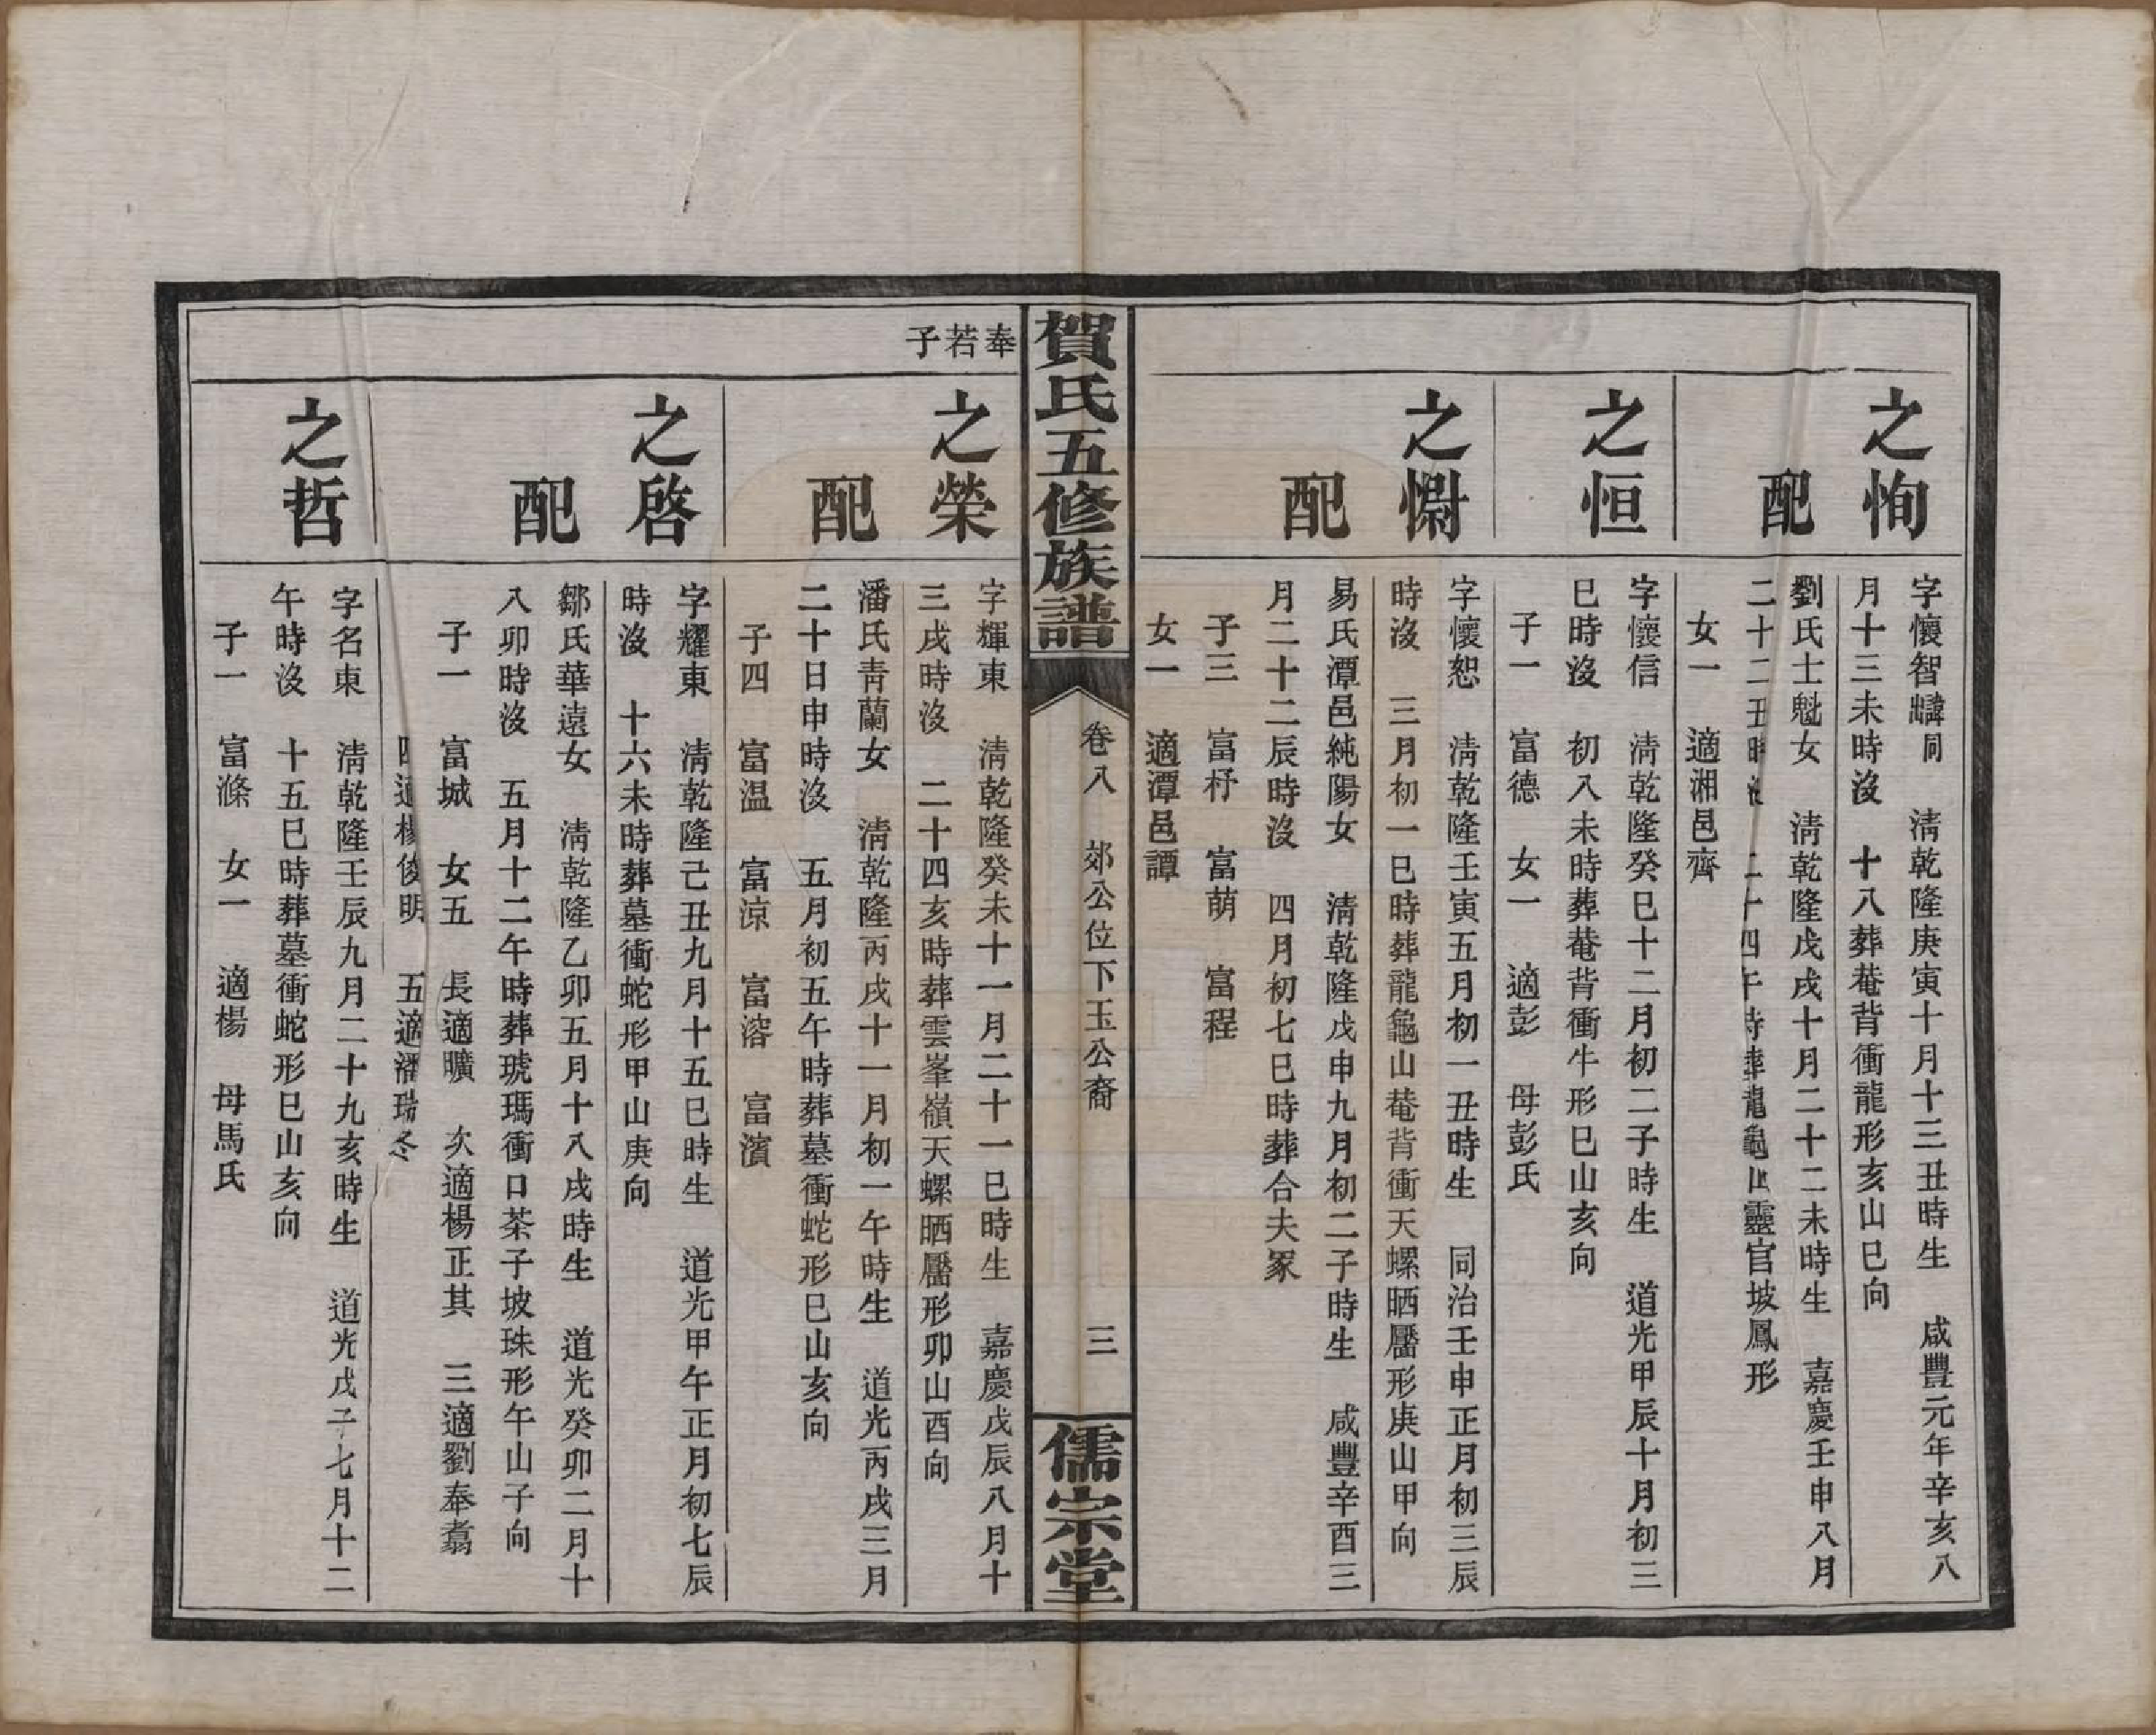 之恂
字懷智 出諱同 清乾隆庚寅十月十三丑時生 咸豐元年辛亥八
月十三未時沒 十八葬菴背衝龍形亥山巳向
配
劉氏士魁女 清乾隆戊戌十月二十二未時生 嘉慶壬申八月
二十二丑時沒 二十四午時葬龍龜山靈官坡鳳形
女一 適湘邑齊
之恒
字懷信 清乾隆癸巳十二月初二子時生 道光甲辰十月初三
巳時沒 初八未時葬菴背衝牛形巳山亥向
子一 富德 女一 適彭 母彭氏
之㦣
字懷恕 清乾隆壬寅五月初一丑時生 同治壬申正月初三辰
時沒 三月初一巳時葬龍龜山菴背衝天螺晒靨形庚山甲向
配
易氏潭邑純陽女 清乾隆戊申九月初二子時生 咸豐辛酉三
月二十二辰時沒 四月初七巳時葬合夫冢
子三 富杼 富萌 富程
女一 適潭邑譚
賀氏五修族譜
卷八 郊公位下玉公裔
三
儒宗堂
奉若子
之榮
字輝東 清乾隆癸未十一月二十一巳時生 嘉慶戊辰八月十
三戌時沒 二十四亥時葬雲峯嶺天螺晒靨形卯山酉向
配
潘氏青蘭女 清乾隆丙戌十一月初一午時生 道光丙戌三月
二十日申時沒 五月初五午時葬墓衝蛇形巳山亥向
子四 富温 富涼 富溶 富濱
之啓
字耀東 清乾隆己丑九月十五巳時生 道光甲午正月初七辰
時沒 十六未時葬墓衝蛇形甲山庚向
配
鄒氏華遠女 清乾隆乙卯五月十八戌時生 道光癸卯二月十
八卯時沒 五月十二午時葬琥瑪衝口茶子坡珠形午山子向
子一 富城 女五 長適曠 次適楊正其 三適劉奉翥
四適楊俊明 五適潘瑞冬
之哲
字名東 清乾隆壬辰九月二十九亥時生 道光戊子七月十二
午時沒 十五巳時葬墓衝蛇形巳山亥向
子一 富滌 女一 適楊 母馬氏